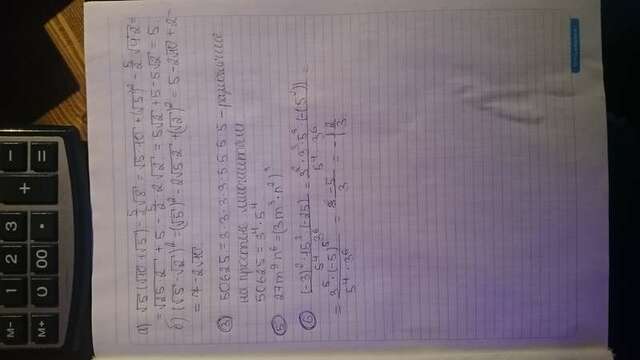 M- 1 2 3 +
M+ 0 00 • =
а) √5(√10+√5) - 5/2√8 = √5·10 + (√5)² - 5/2√4·2 =
= √25·2 + 5 - 5/2·2√2 = 5√2+5-5√2 = 5
б) (√5-√2)² = (√5)² - 2√5·2 + (√2)² = 5-2√10+2=
= 7-2√10
③ 50625 = 3·3·3·3·5·5·5·5 - разложение
на простые множители
50625 = 3⁴·5⁴
⑤ 27m⁹n⁶ = (3m³·n²)³
⑥
= 3⁵·(-5)⁵ / 5⁴·3⁶ = -5/3 = -1 2/3